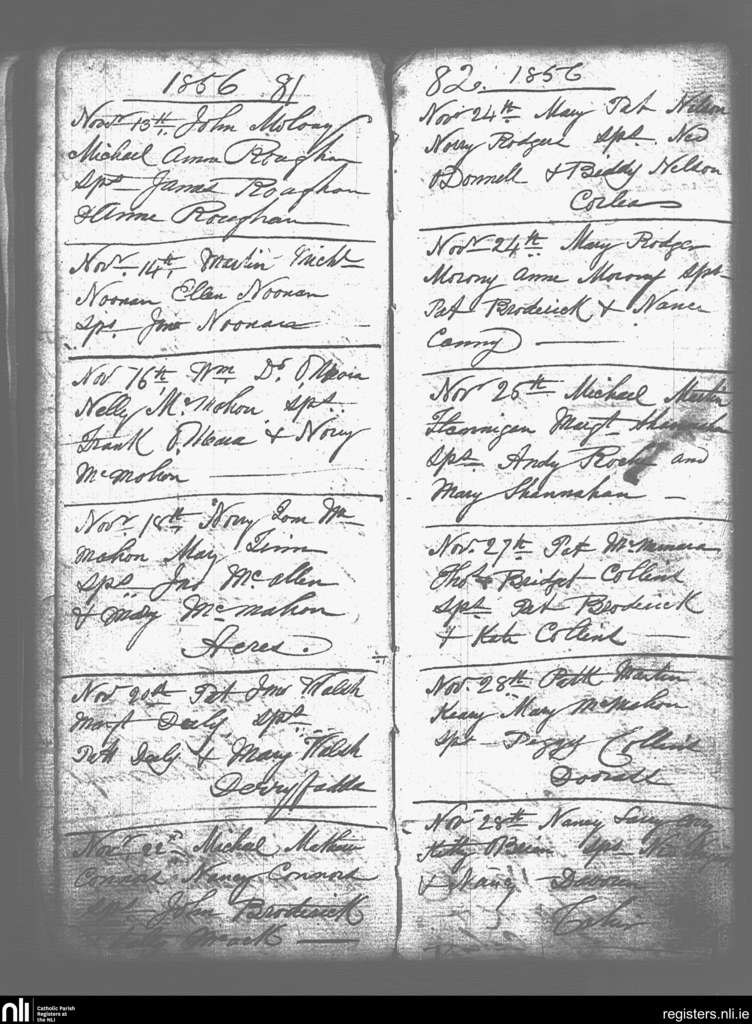 1856 81
Novr 13th John Molony
Michael Anne Roughan
Sps James Roughan
& Anne Roughan
Novr 14th Martin Michl
Noonan Ellen Noonan
Sps. Jno Noonan
Nov 16th Wm Ds. O'Meara
Nelly McMohon Sps.
Frank O'Meara & Nory
McMohon
Novr. 18th Nory Tom Mc
mahon Mary Finn
Sps Jno McAllen
& Mary McMahon
Acres.
Nov 20th Pat Jno Walsh
Margt Dealy Spts
Patt Dealy & Mary Walsh
Derryfadda
Novr 22 Michal Mathew
Connors Nancy Connors
Sps John Broderick
Mack
82. 1856
Novr 24th Mary Pat Nelson
Norry Rodgers Sps. Ned
O'Donnell & Biddy Nelson
Novr 24th Mary Rodger
Morony Anne Morony Sps
Pat Broderick & Nance
Canny
Novr 25th Michael Martin
Flannigan Margt Shannahan
Sps Andy Roche and
Mary Shannahan
Nov. 27th Pat McNamara
Thos & Bridget Collins
Sps Pat Broderick
& Kate Collins
Nov. 28th Patk Martin
Keary Mary McMahon
Sps Peggy Collins
Doorass
Nov 28th Nancy
Kitty O'Brien Sps
& Nancy Davoren
nli
Catholic Parish
Registers at
the NLI
registers.nli.ie